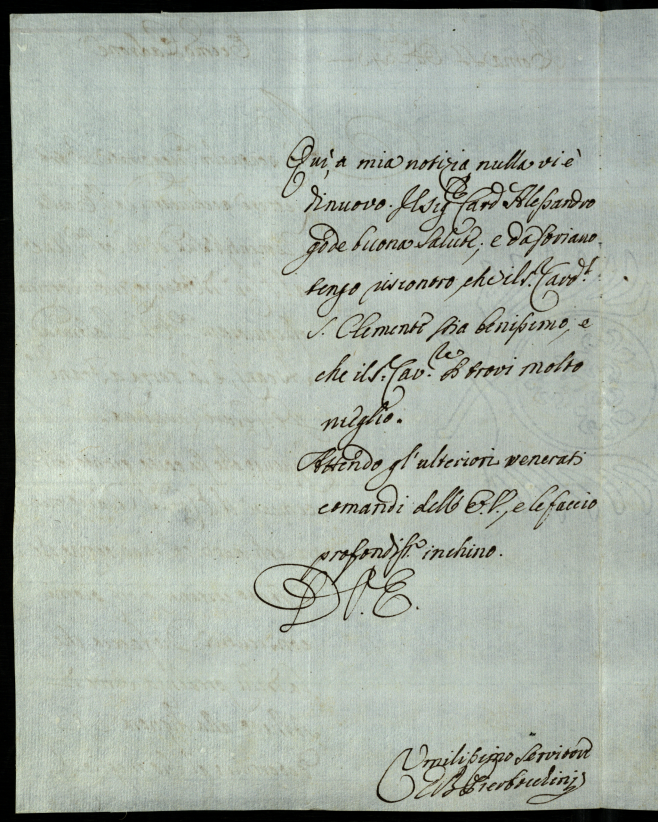 Qui, a mia notizia nulla vi è
di nuovo. Il Sig. Card. Alessandro
gode buona salute, e da Soriano
tengo riscontro, che il S. Card.
S. Clemente stia benissimo, e
che il S. Cav.re si trovi molto
meglio.
Attendo gl'ulteriori venerati
comandi dell' E.V., e le faccio
profondiss. inchino.
D V. E.
Umilissimo Servitore